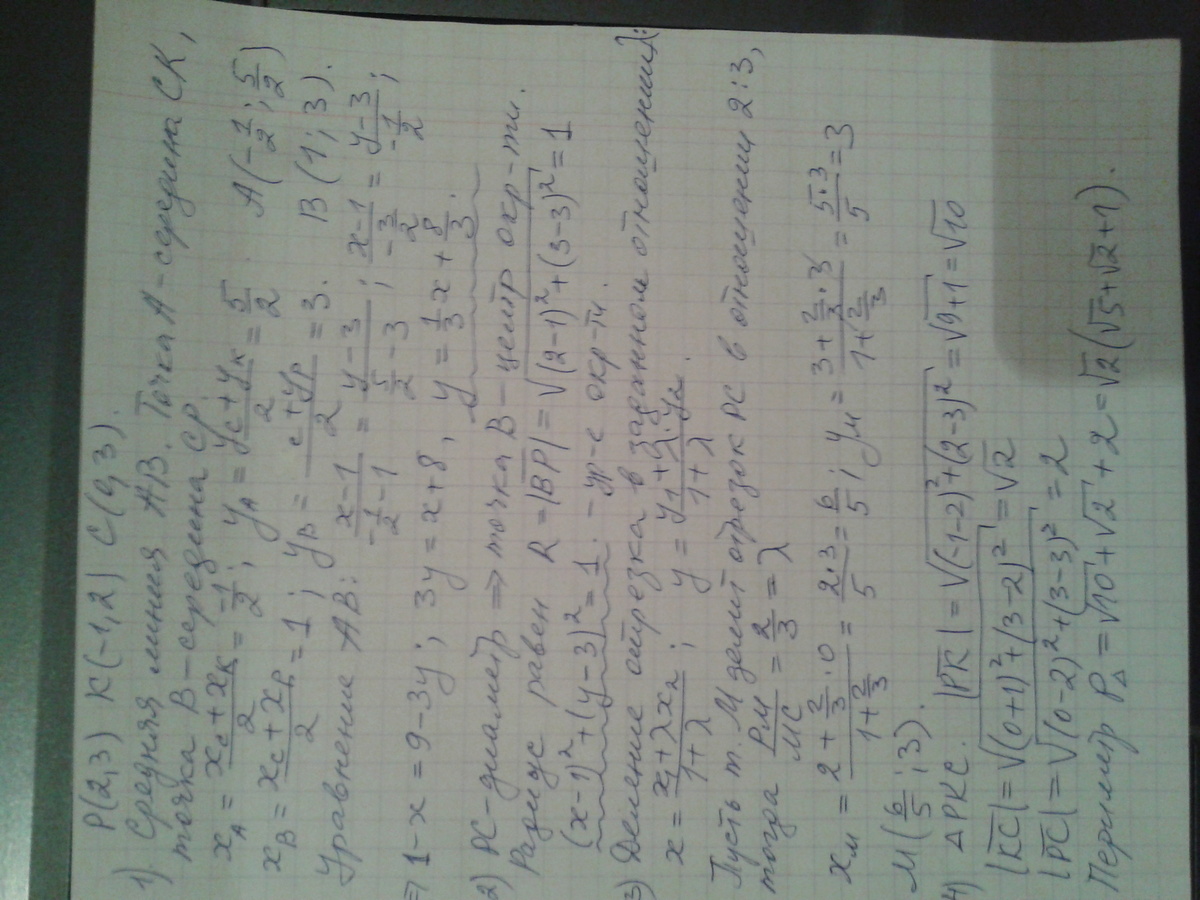 P(2,3) K(-1,2) C(0,3).
1). Средняя линия AB. Точка A - середина CK,
точка B - середина CP.
x_A = (x_C + x_K)/2 = -1/2; y_A = (y_C + y_K)/2 = 5/2. A(-1/2; 5/2)
x_B = (x_C + x_P)/2 = 1; y_B = (c + y_P)/2 = 3. B(1; 3).
Уравнение AB: (x-1)/(-1/2-1) = (y-3)/(5/2-3); (x-1)/(-3/2) = (y-3)/(-1/2);
⇒ 1-x = 9-3y; 3y = x+8, y = 1/3 x + 8/3.
2) PC - диаметр ⇒ точка B - центр окр-ти.
Радиус равен R = |BP| = √((2-1)²+(3-3)²) = 1
(x-1)²+(y-3)² = 1. - ур-е окр-ти.
3) Деление отрезка в заданном отношении λ:
x = (x₁+λx₂)/(1+λ); y = (y₁+λ·y₂)/(1+λ).
Пусть т. M делит отрезок PC в отношении 2:3,
тогда PM/MC = 2/3 = λ
x_M = (2+2/3·0)/(1+2/3) = 2·3/5 = 6/5; y_M = (3+2/3·3)/(1+2/3) = 5·3/5 = 3
M(6/5; 3).
4) △PKC. |PK| = √((-1-2)²+(2-3)²) = √(9+1) = √10
|KC| = √((0+1)²+(3-2)²) = √2
|PC| = √((0-2)²+(3-3)²) = 2
Периметр P△ = √10+√2+2 = √2(√5+√2+1).